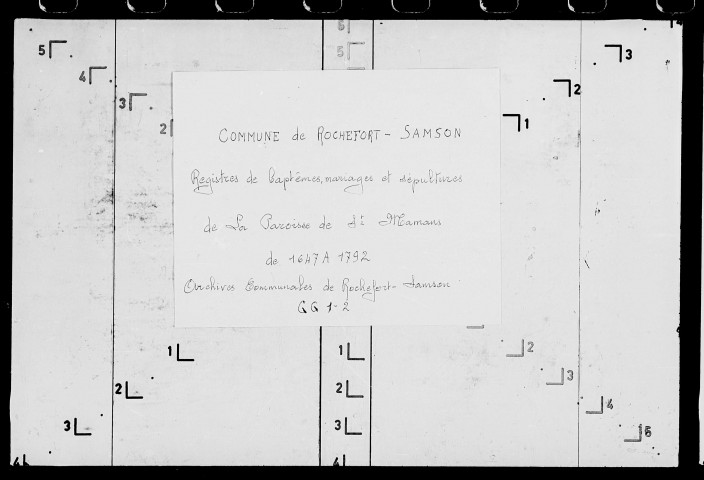 COMMUNE de ROCHEFORT - SAMSON
Registres de baptêmes, mariages et sépultures
de La Paroisse de St Mamans
de 1647 A 1792
Archives Communales de Rochefort-Samson
GG 1-2